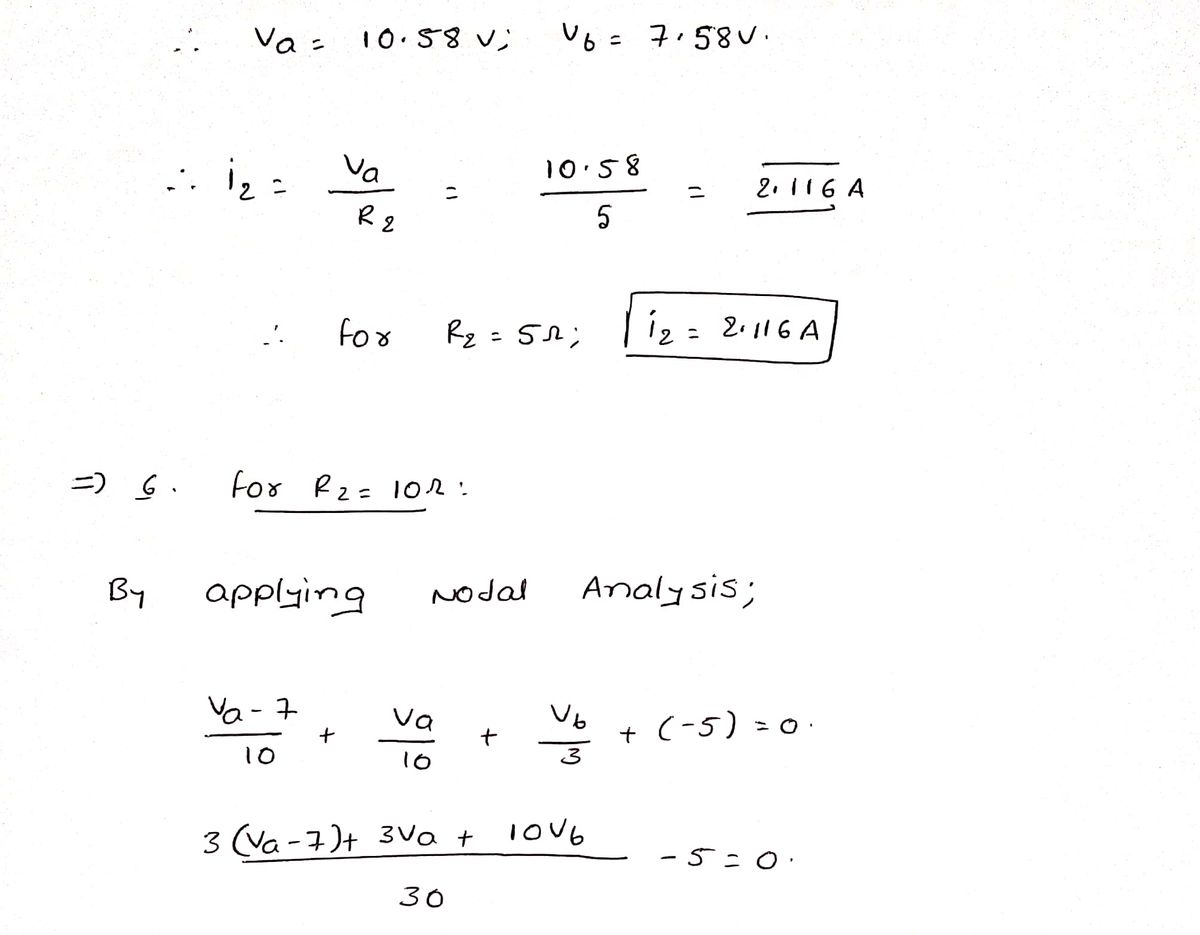 ∴ Va = 10.58 V; Vb = 7.58V.
∴ i2 = Va/R2 = 10.58/5 = 2.116 A
∴ for R2 = 5Ω; i2 = 2.116 A
=) 6. for R2 = 10Ω:
By applying Nodal Analysis;
Va-7/10 + Va/10 + Vb/3 + (-5) = 0.
3(Va-7)+ 3Va + 10Vb/30 - 5 = 0.